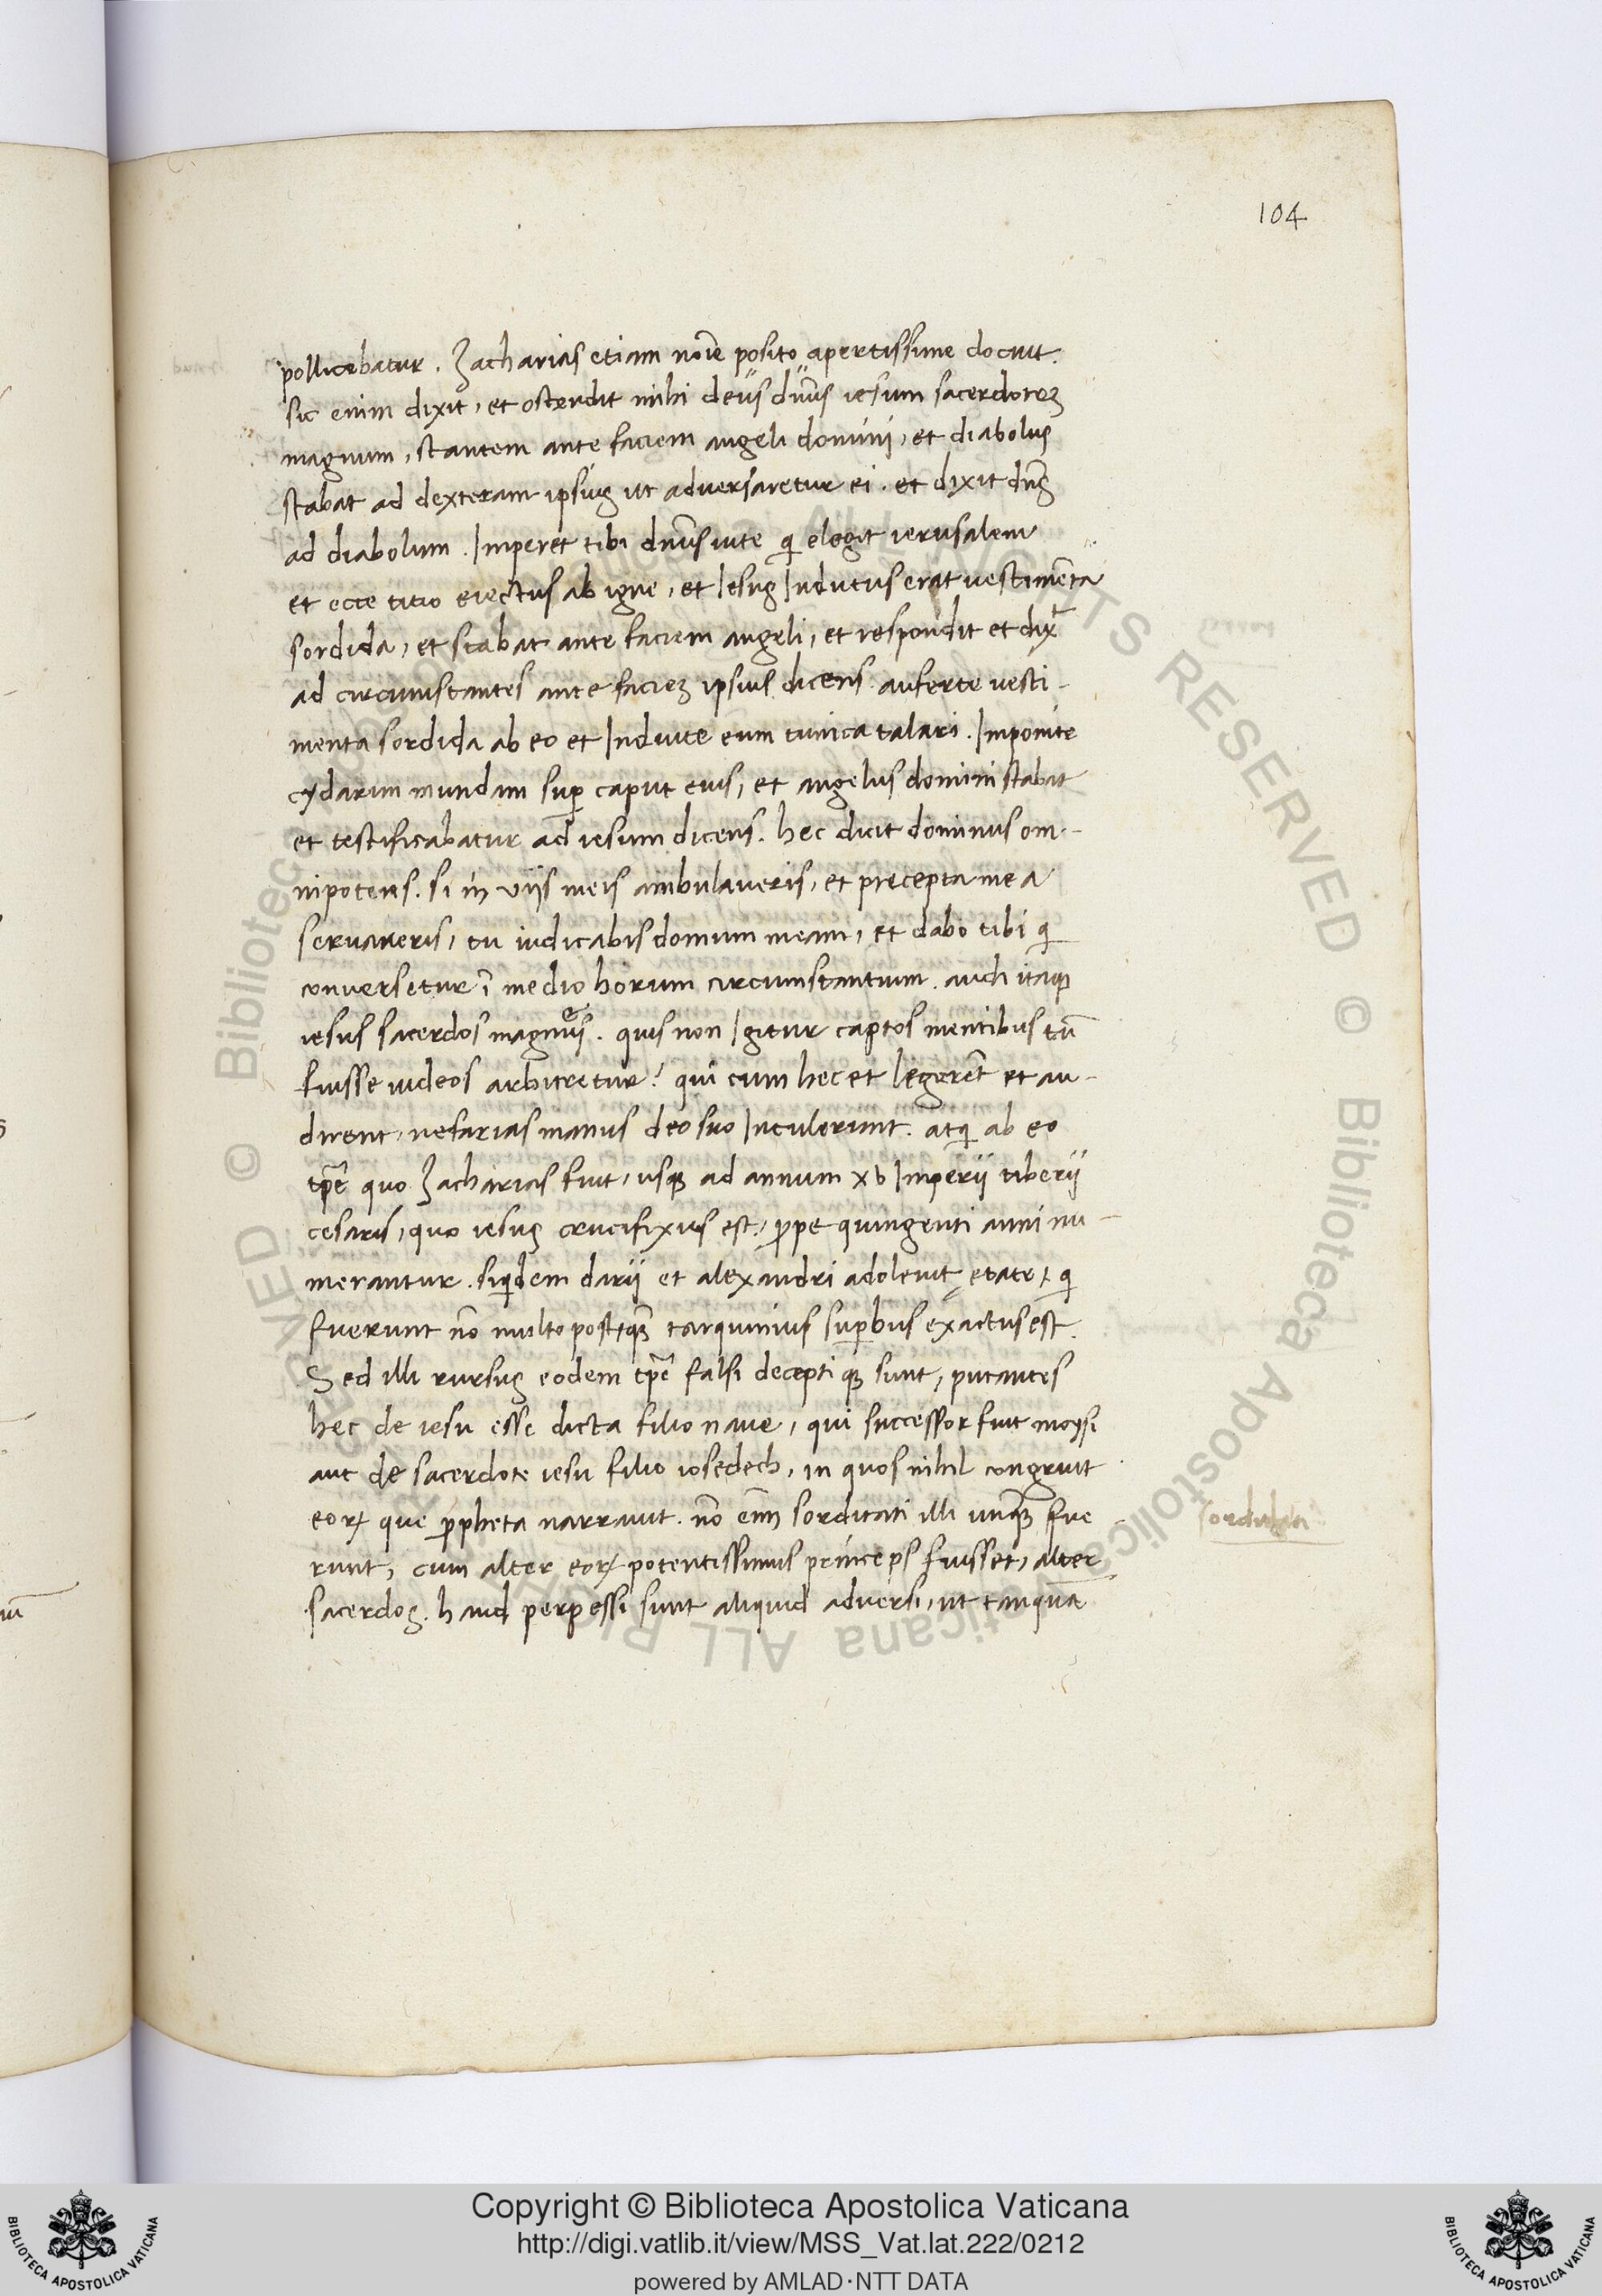 104
pollicebatur. Zacharias etiam noīe posito apertissime docuit.
sic enim dixit, et ostendit mihi deus dn̄s iesum sacerdotez
magnum, stantem ante faciem angeli domini, et diabolus
stabat ad dexteram ipsius ut adversaretur ei. et dixit dn̄s
ad diabolum. Imperet tibi dn̄s in te qi elegit ierusalem
et ecce titio eiectus ab igne, et Iesus Indutus erat vestimēta
sordida, et stabat ante faciem angeli, et respondit et dixt
ad circumstantes ante faciez ipsius dicens. auferte vesti-
menta sordida ab eo et Induite eum tunica talari. Imponite
cydarim mundam sup̱ caput eius, et angelus domini stabat
et testificabatur ad iesum dicens. hec dicit dominus om-
nipotens. si in viis meis ambulaveris, et precepta mea
servaveris, tu iudicabis domum meam, et dabo tibi qi
conversetur ī medio horum circumstantium. audi itaqꝫ
iesus sacerdos magnus. quis non Igitur captos mentibus tū
fuisse iudeos arbitretur? qui cum hec et legerēt et au-
dirent, nefarias manus deo suo Intulerunt. atqi ab eo
tp̄e quo Zacharias fuit, usqꝫ ad annum xv Imperij tiberij
cesaris, quo iesus crucifixus est, ꝓpe quingenti anni nu-
merantur. siqidem darij et alexandri adolevit ętate, qi
fuerunt nō multo postqꝫ tarquinius sup̱bus exactus est.
Sed illi rursus eodem tp̄e falsi decepti qꝫ sunt, putantes
hec de iesu esse dicta filio nave, qui successor fuit moysi
aut de sacerdote iesu filio iosedech, in quos nihil congruit
eoꝝ que ꝓpheta narravit. nō eīm sorditati illi unqꝫ fue-
runt, cum alter eoꝝ potentissimus princeps fuisset, alter
sacerdos. haud perpessi sunt aliquid adversi, ut tanquā
sordidati
Copyright © Biblioteca Apostolica Vaticana
http://digi.vatlib.it/view/MSS_Vat.lat.222/0212
powered by AMLAD·NTT DATA
BIBLIOTECA APOSTOLICA VATICANA
BIBLIOTECA APOSTOLICA VATICANA
© Biblioteca Apostolica Vaticana ALL RIGHTS RESERVED
© Biblioteca Apostolica Vaticana ALL RIGHTS RESERVED